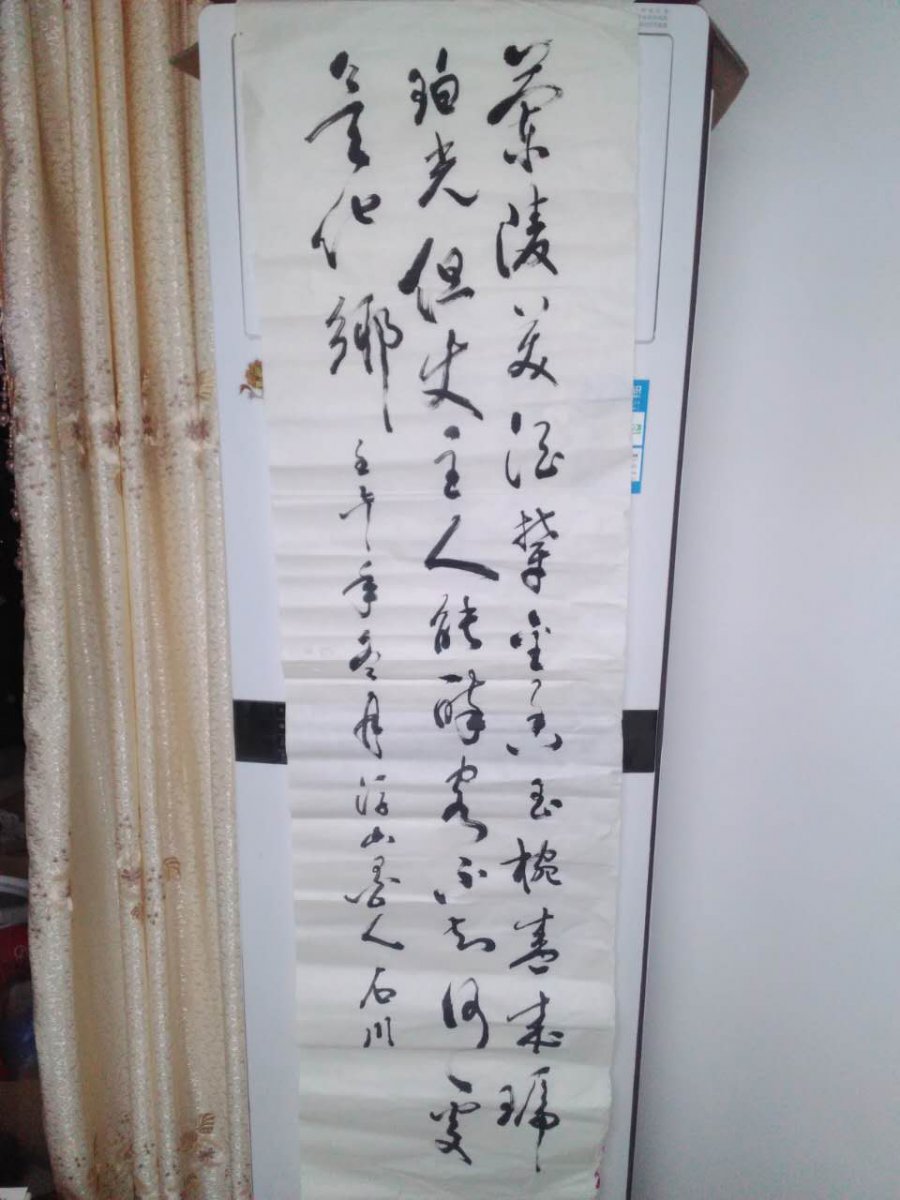 蘭陵美酒鬱金香玉椀盛来琥
珀光但使主人能醉客不知何處
是他鄉
壬午年冬月浮山墨人石川